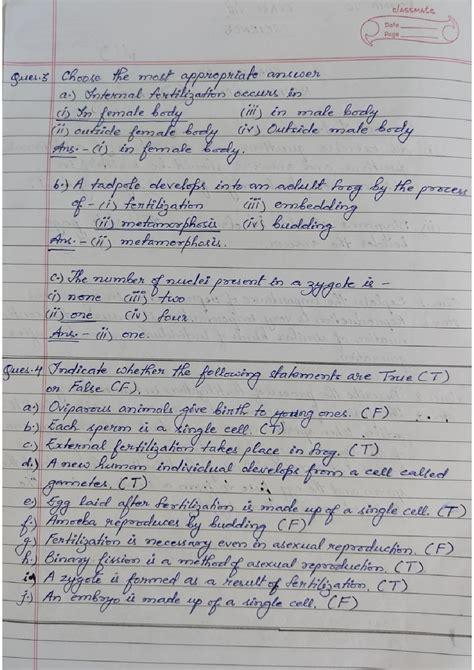 classmate
Date
Page
Ques.3 Choose the most appropriate answer
a.) Internal fertilization occurs in
(i) In female body (iii) in male body
(ii) outside female body (iv) Outside male body
Ans.- (i) in female body.
b.) A tadpole develops into an adult frog by the process
of - (i) fertilization (iii) embedding
(ii) metamorphosis (iv) budding
Ans - (ii) metamorphosis.
c.) The number of nuclei present in a zygote is -
(i) none (iii) two
(ii) one (iv) four
Ans - (ii) one.
Ques.4 Indicate whether the following statements are True (T)
or False (F).
a.) Oviparous animals give birth to young ones. (F)
b.) Each sperm is a single cell. (T)
c.) External fertilization takes place in frog. (T)
d.) A new human individual develops from a cell called
gametes. (T)
e.) Egg laid after fertilization is made up of a single cell. (T)
f.) Amoeba reproduces by budding (F)
g) Fertilization is necessary even in asexual reproduction. (F)
h.) Binary fission is a method of asexual reproduction. (T)
i.) A zygote is formed as a result of fertilization. (T)
j.) An embryo is made up of a single cell. (F)